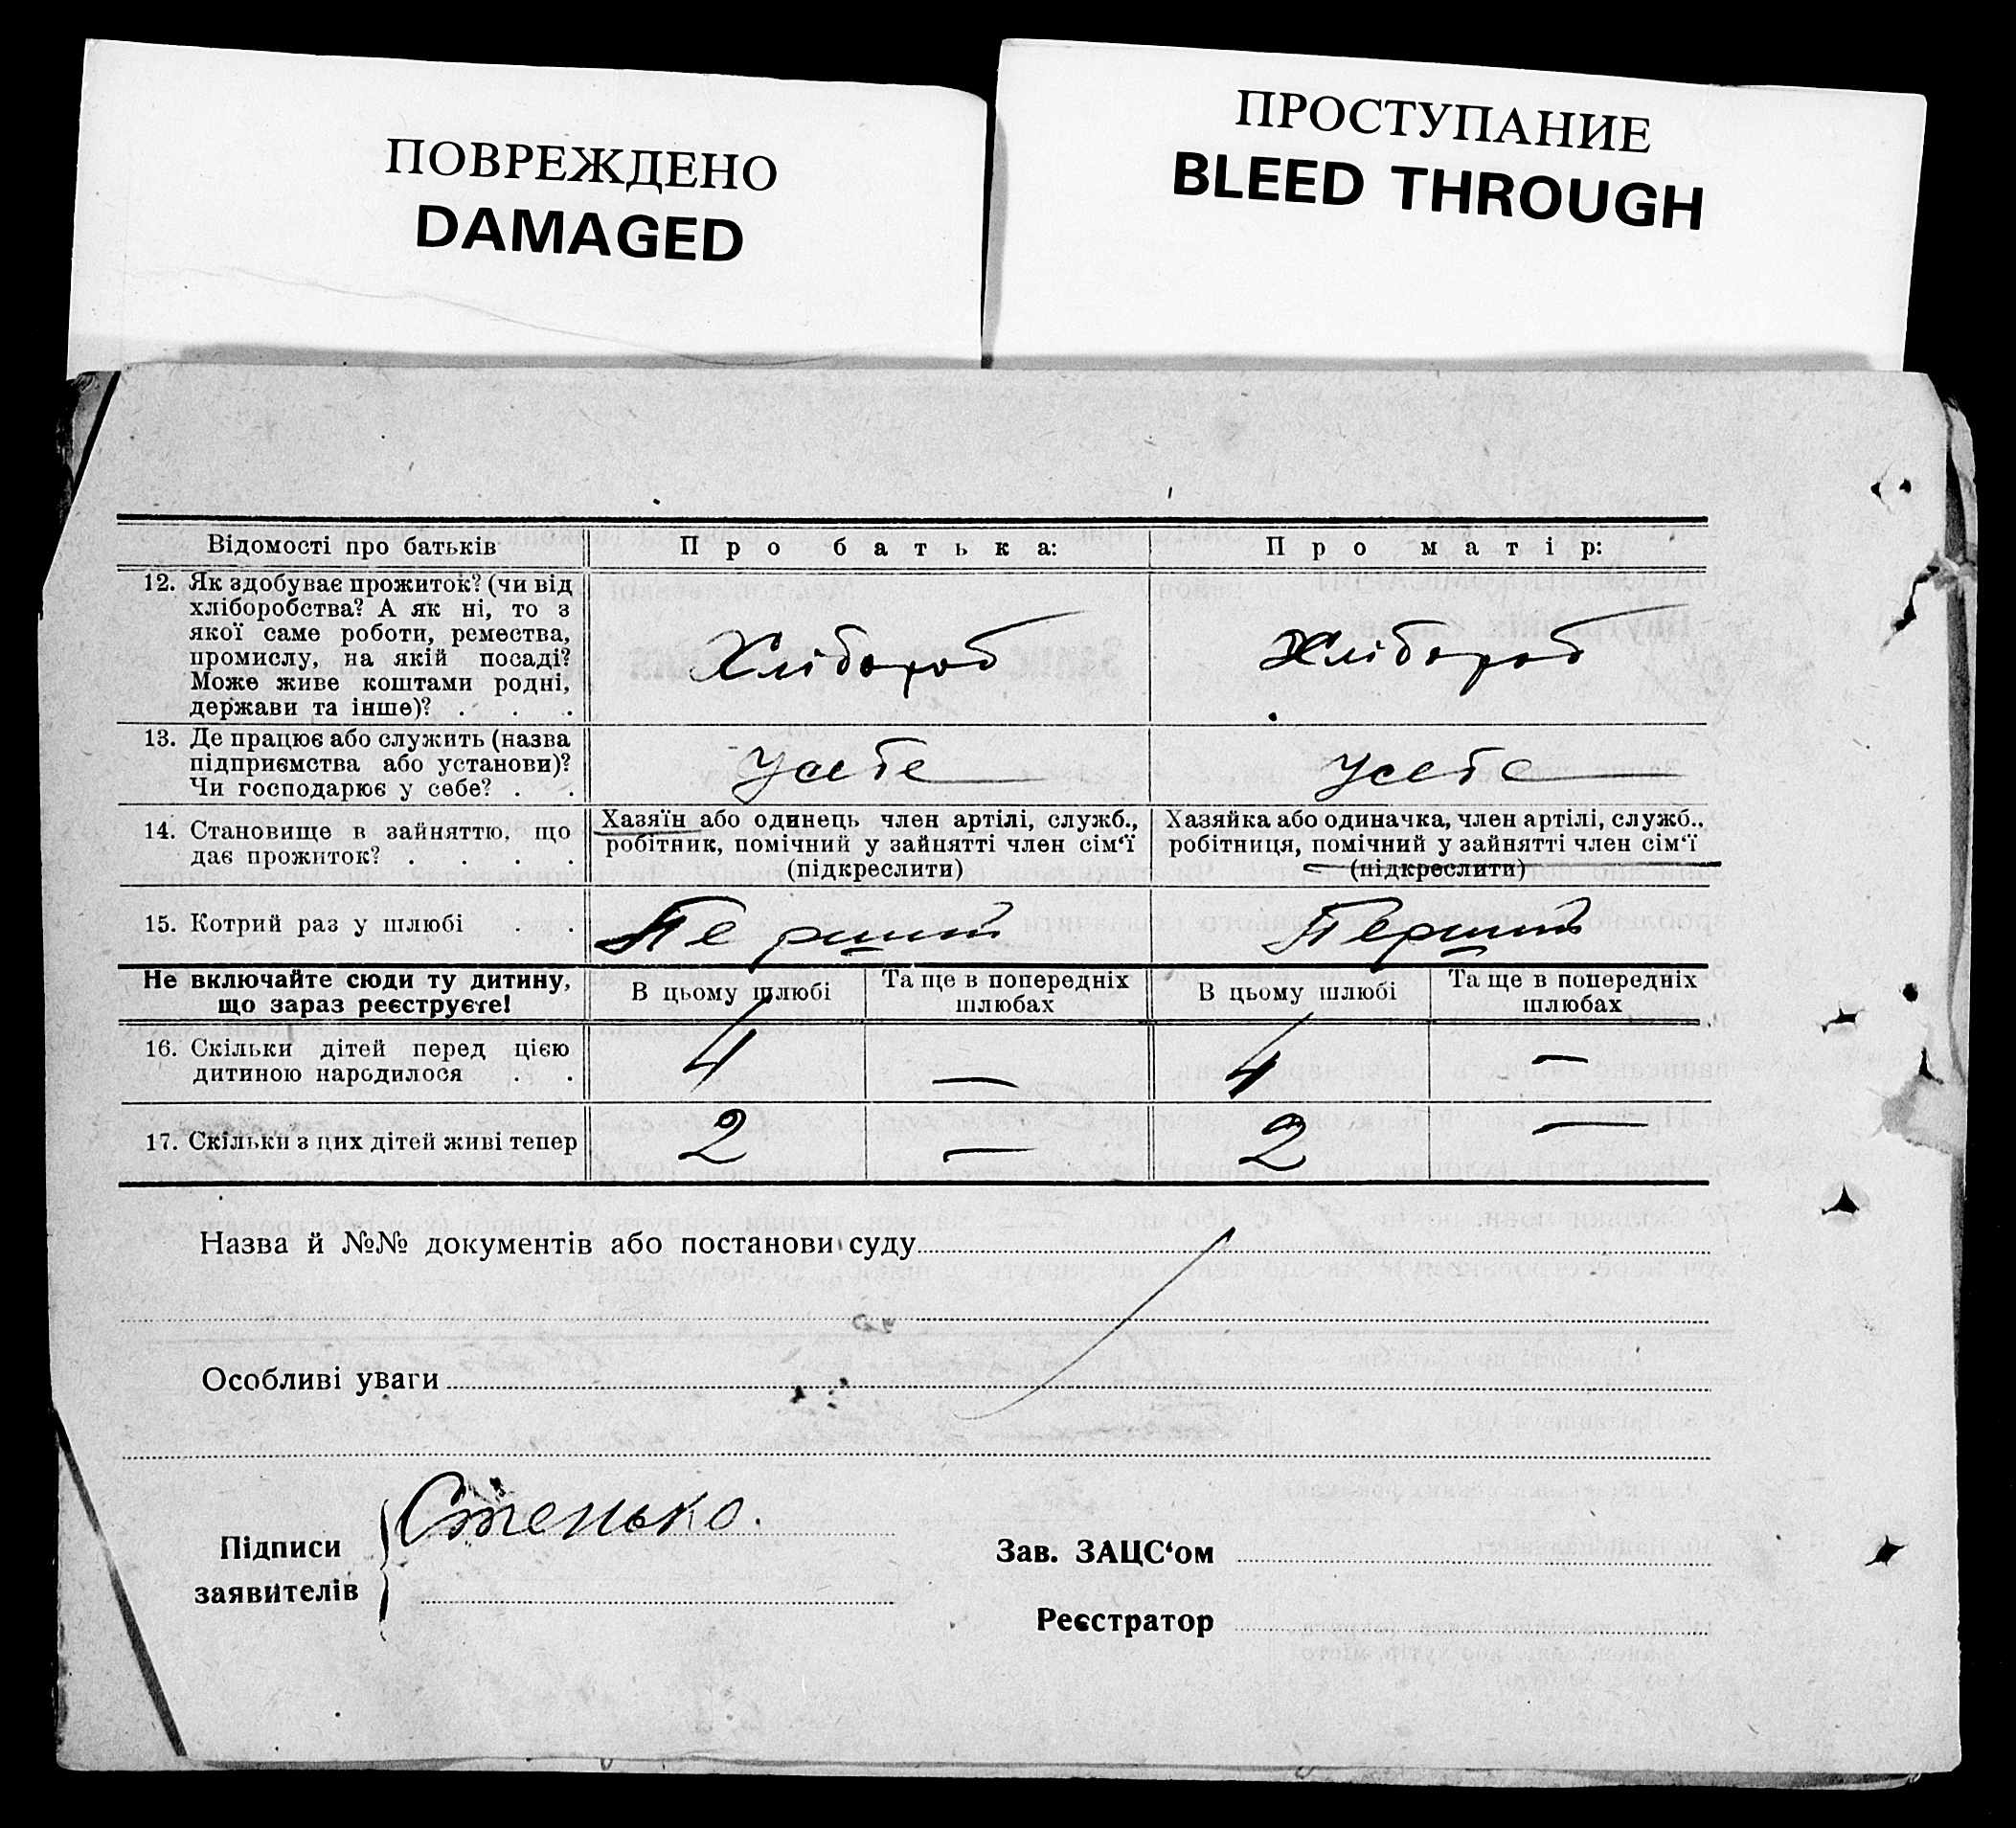 ПОВРЕЖДЕНО
DAMAGED
ПРОСТУПАНИЕ
BLEED THROUGH
Відомості про батьків
Про батька:
Про матір:
12. Як здобуває прожиток? (чи від
хліборобства? А як ні, то з
якої саме роботи, ремества,
промислу, на якій посаді?
Може живе коштами родні,
держави та інше)? . . .
Хлібороб
Хлібороб
13. Де працює або служить (назва
підприємства або установи)?
Чи господарює у себе? . .
У себе
У себе
14. Становище в зайняттю, що
дає прожиток? . . . .
Хазяїн або одинець член артілі, служб.,
робітник, помічний у зайнятті член сім‘ї
(підкреслити)
Хазяйка або одиначка, член артілі, служб..
робітниця, помічний у зайнятті член сім‘ї
(підкреслити)
15. Котрий раз у шлюбі . .
Перший
Перший
Не включайте сюди ту дитину,
що зараз реєструєте!
В цьому шлюбі
Та ще в попередніх
шлюбах
В цьому шлюбі
Та ще в попередніх
шлюбах
16. Скільки дітей перед цією
дитиною народилося . .
4
—
4
—
17. Скільки з цих дітей живі тепер
2
—
2
—
Назва й №№ документів або постанови суду
Особливі уваги
Підписи
заявителів
Стенько.
Зав. ЗАЦС‘ом
Реєстратор